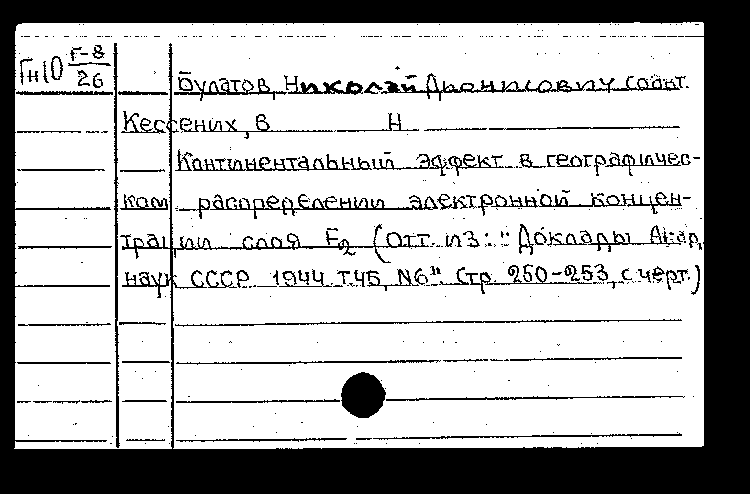 Гн10 Г-8
26
Булатов, Николай Дионисович соавт.
Кессених, В Н
Континентальный эффект в географичес-
ком распределении электронной концен-
трации слоя F2 (Отт. из: "Доклады Акад.
наук СССР 1944 Т.45, N6". Стр. 250-253, с черт.)